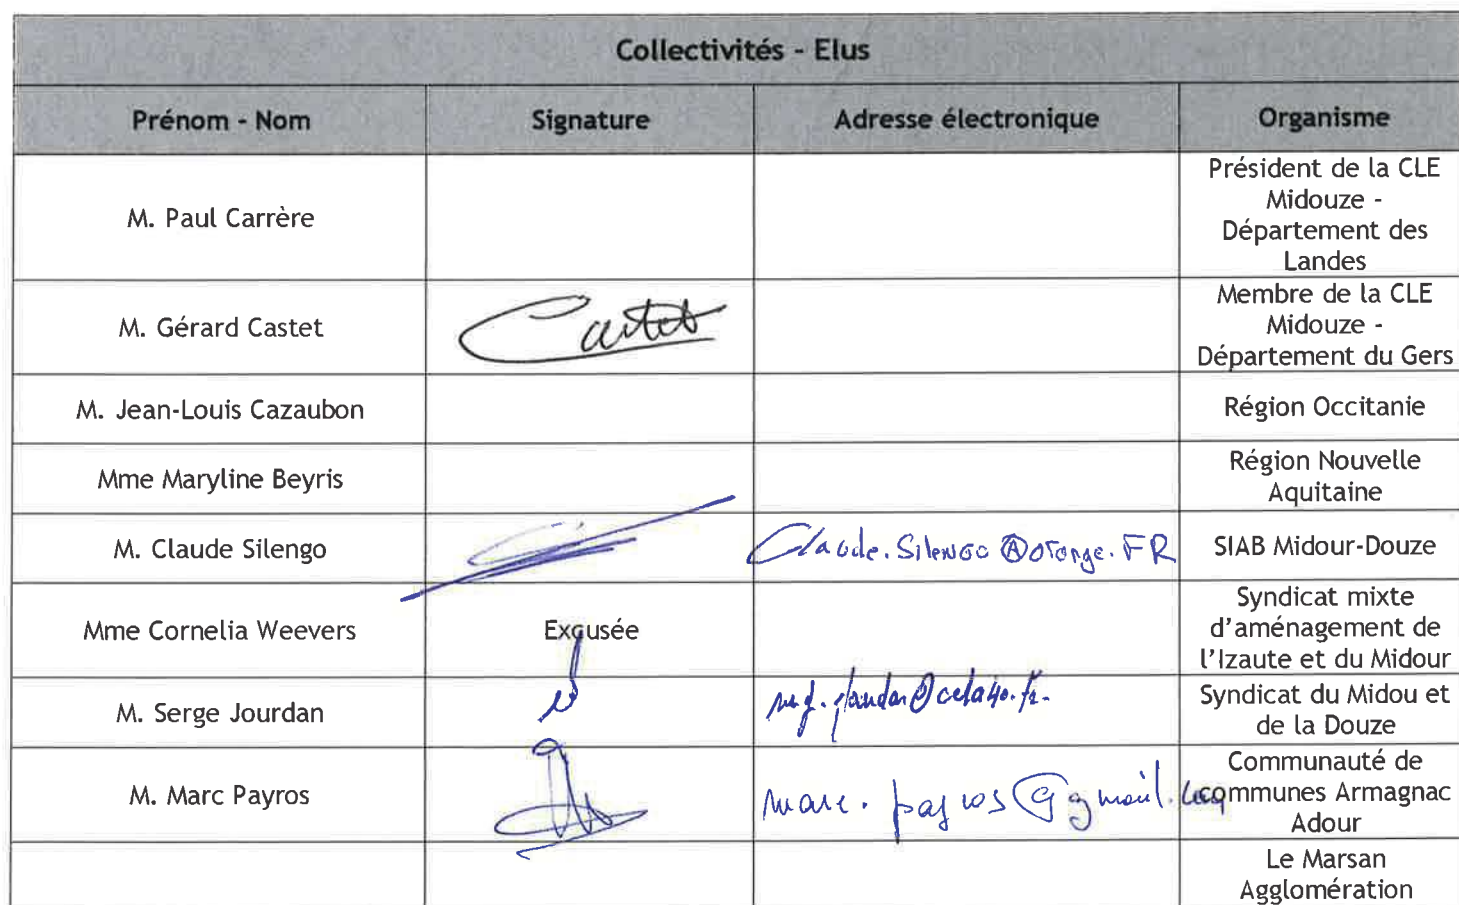 Collectivités - Elus
Prénom - Nom
Signature
Adresse électronique
Organisme
M. Paul Carrère
Président de la CLE
Midouze -
Département des
Landes
M. Gérard Castet
Castet
Membre de la CLE
Midouze -
Département du Gers
M. Jean-Louis Cazaubon
Région Occitanie
Mme Maryline Beyris
Région Nouvelle
Aquitaine
M. Claude Silengo
Claude.Silengo@orange.FR
SIAB Midour-Douze
Mme Cornelia Weevers
Excusée
Syndicat mixte
d'aménagement de
l'Izaute et du Midour
M. Serge Jourdan
Syndicat du Midou et
de la Douze
M. Marc Payros
marc.payros@gmail.com
Communauté de
communes Armagnac
Adour
Le Marsan
Agglomération